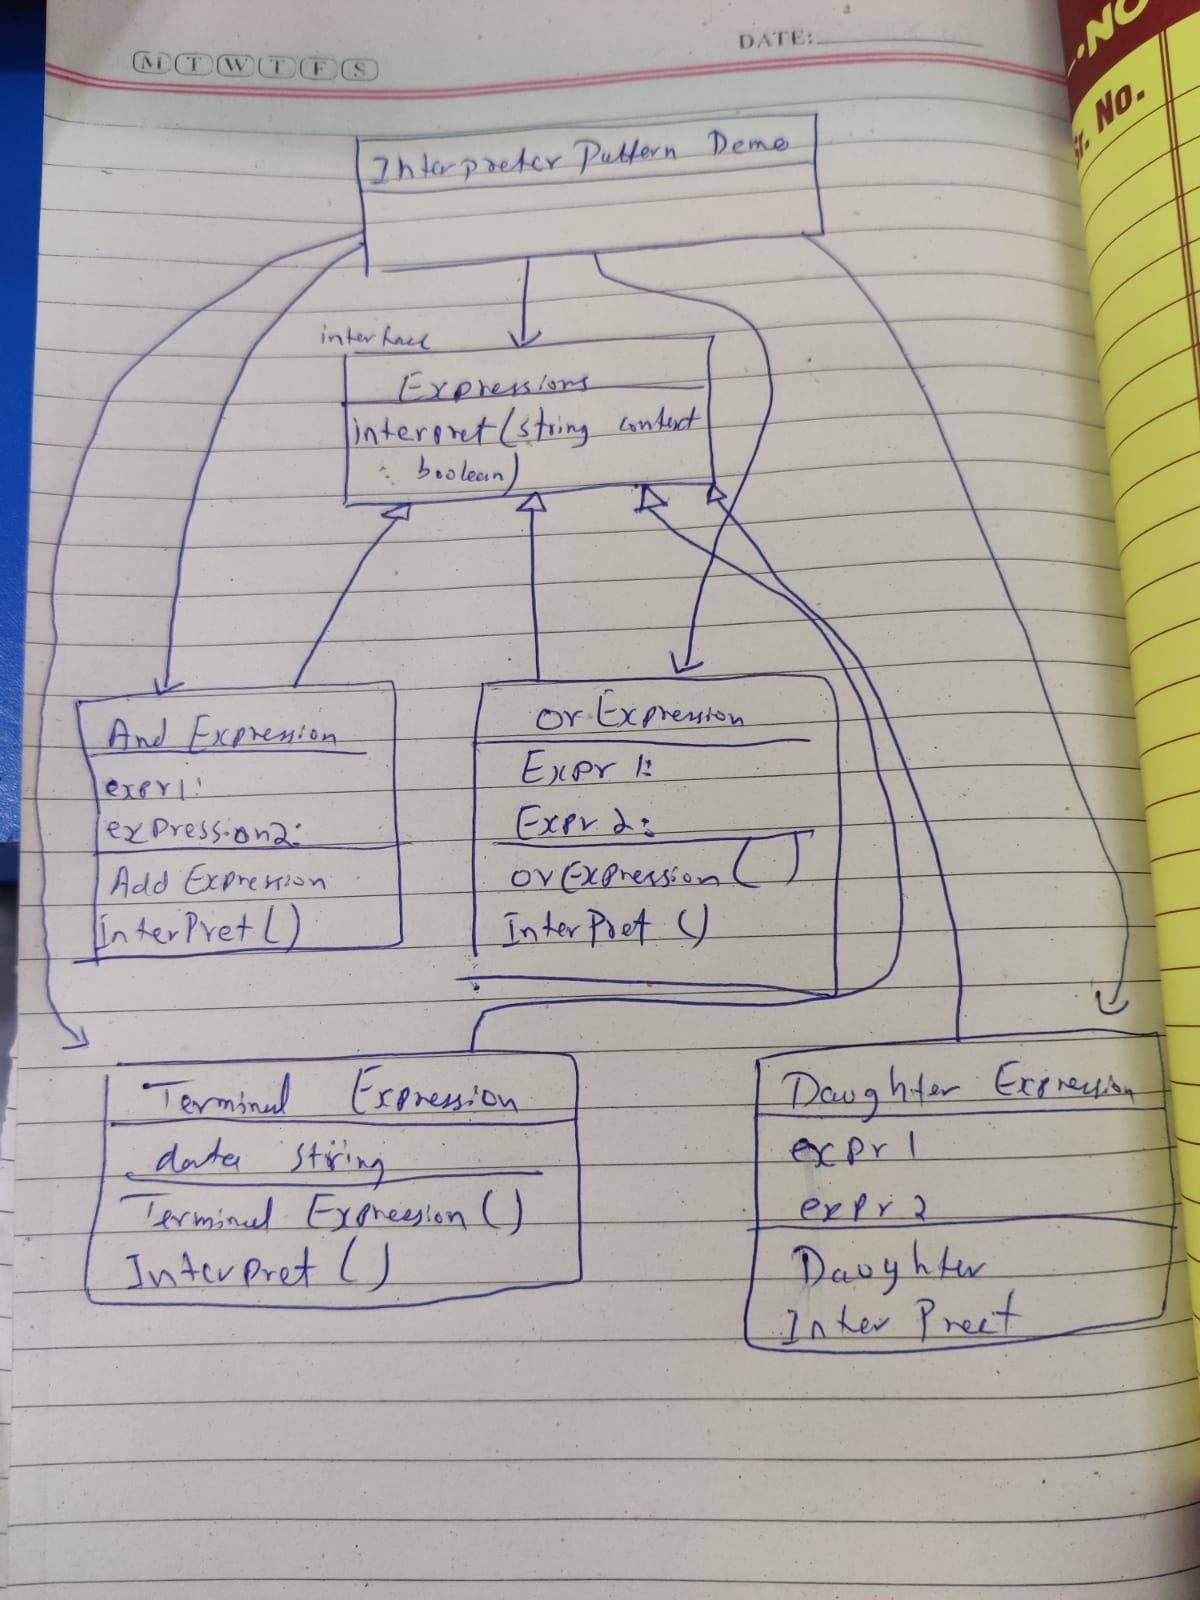 M T W T F S
DATE:
.NO
Sr. No.
Interpreter Pattern Demo
interface
Expressions
interpret(string context
: boolean)
And Expression
expr1:
expression2:
Add Expression
interPret()
Or Expression
Expr 1:
Expr 2:
orExpression()
InterPret ()
Terminal Expression
data string
Terminal Expression()
Interpret ()
Daughter Expression
expr 1
expr 2
Daughter
Inter Preet